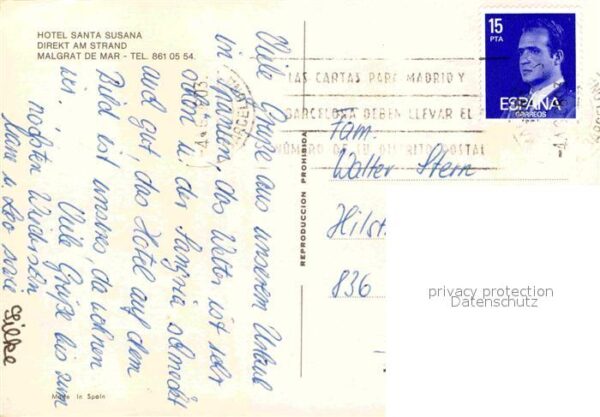 HOTEL SANTA SUSANA
DIREKT AM STRAND
MALGRAT DE MAR - TEL. 861 05 54.
Viele Grüße aus unserem Urlaub
in Spanien, das Wetter ist sehr
und der Sangria schmeckt
auch gut das Hotel auf dem
Bild ist unseres, da wohnen
wir.
Viele Grüße bis zum
nächsten Wiedersehn
sowie
Silke
Made in Spain
REPRODUCCION PROHIBIDA
15
PTA
ESPAÑA
CORREOS
LAS CARTAS PARA MADRID Y
BARCELONA DEBEN LLEVAR EL
NUMERO DE SU DISTRITO POSTAL
BARCELONA
Fam.
Walter Stern
836
privacy protection
Datenschutz